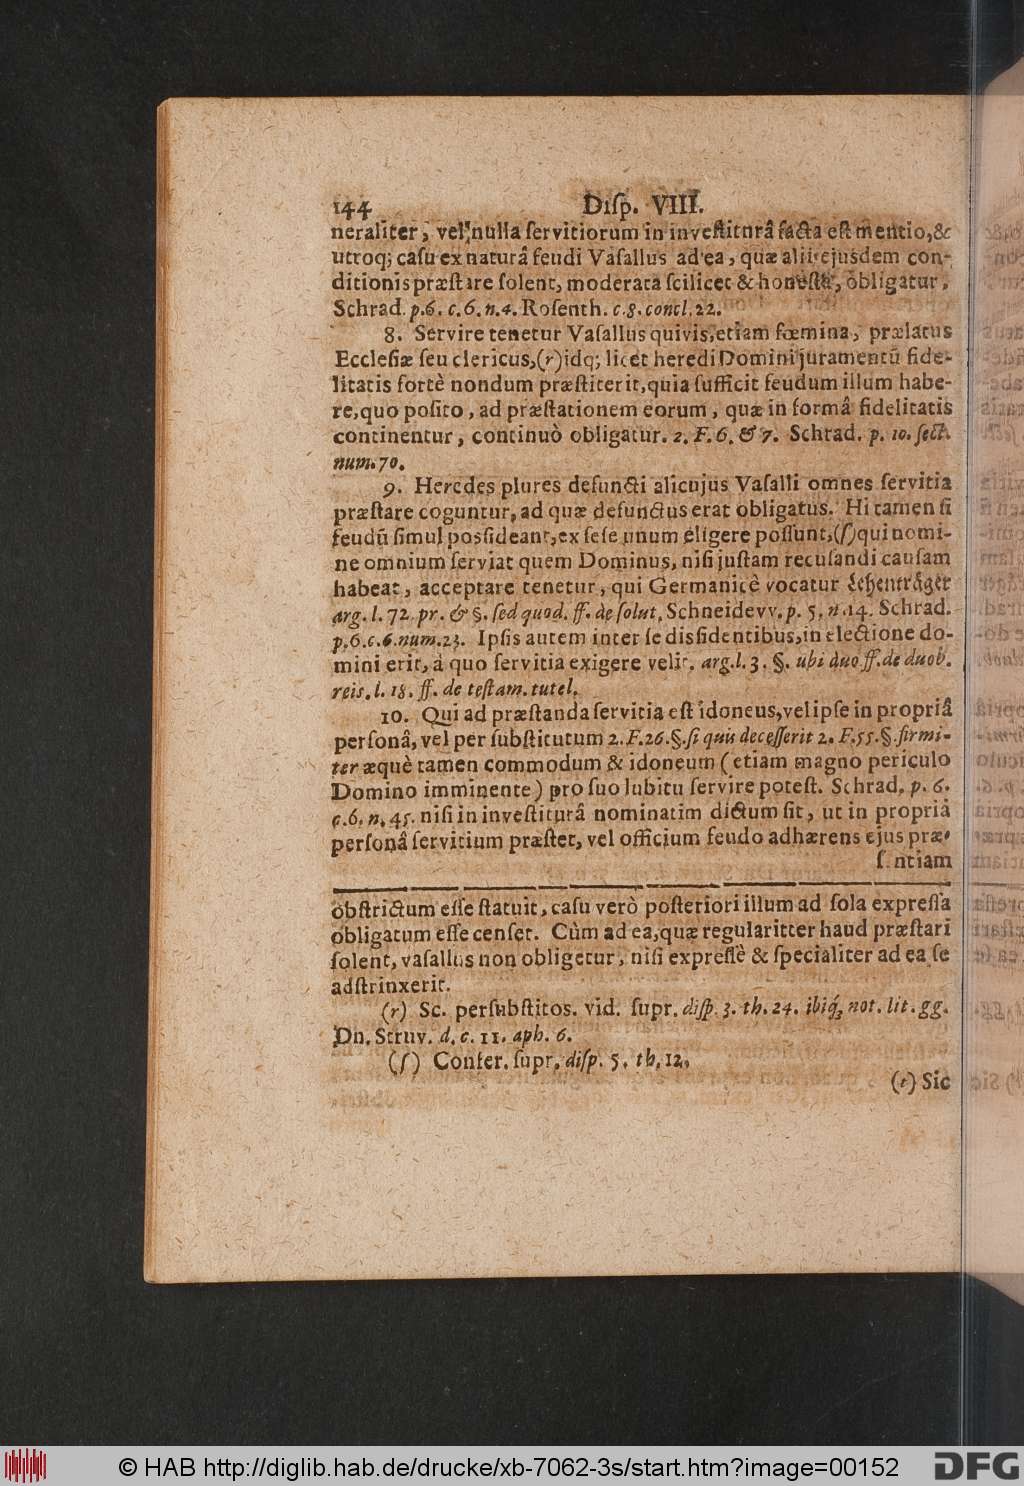 144 Diſp. VIII.
neraliter, vel nulla ſervitiorum in inveſtiturâ facta eſt mentio, &
utroq; caſu ex naturâ feudi Vaſallus ad ea, quæ alii ejusdem con-
ditionis præſtare ſolent, moderata ſcilicet & honeſta, obligatur.
Schrad. p. 6. c. 6. n. 4. Roſenth. c. 8. concl. 22.
8. Servire tenetur Vaſallus quivis, etiam fœmina, prælatus
Eccleſiæ ſeu clericus, (r) idq; licet heredi Domini juramentū fide-
litatis fortè nondum præſtiterit, quia ſufficit feudum illum habe-
re, quo poſito, ad præſtationem eorum, quæ in formâ fidelitatis
continentur, continuò obligatur. 2. F. 6. & 7. Schrad. p. 10. ſect.
num. 70.
9. Heredes plures defuncti alicujus Vaſalli omnes ſervitia
præſtare coguntur, ad quæ defunctus erat obligatus. Hi tamen ſi
feudū ſimul posſideant, ex ſeſe unum eligere poſſunt, (ſ) qui nomi-
ne omnium ſerviat quem Dominus, niſi juſtam recuſandi cauſam
habeat, acceptare tenetur, qui Germanicè vocatur Lehenträger
arg. l. 72. pr. & §. ſed quod. ff. de ſolut. Schneidevv. p. 5. n. 14. Schrad.
p. 6. c. 6. num. 23. Ipſis autem inter ſe disſidentibus, in electione do-
mini erit, à quo ſervitia exigere velit. arg. l. 3. §. ubi duo ff. de duob.
reis. l. 18. ff. de teſtam. tutel.
10. Qui ad præſtanda ſervitia eſt idoneus, vel ipſe in propriâ
perſonâ, vel per ſubſtitutum 2. F. 26. §. ſi quis deceſſerit 2. F. 55. §. firmi-
ter æquè tamen commodum & idoneum (etiam magno periculo
Domino imminente) pro ſuo lubitu ſervire poteſt. Schrad. p. 6.
c. 6. n. 45. niſi in inveſtiturâ nominatim dictum ſit, ut in propriâ
perſonâ ſervitium præſtet, vel officium feudo adhærens ejus præ-
ſ. ntiam
obſtrictum eſſe ſtatuit, caſu verò poſteriori illum ad ſola expreſſa
obligatum eſſe cenſet. Cùm ad ea, quæ regularitter haud præſtari
ſolent, vaſallus non obligetur, niſi expreſſè & ſpecialiter ad ea ſe
adſtrinxerit.
(r) Sc. perſubſtitos. vid. ſupr. diſp. 3. th. 24. ibiq; not. lit. gg.
Dn. Struv. d. c. 11. aph. 6.
(ſ) Confer. ſupr. diſp. 5. th. 12.
(t) Sic
© HAB http://diglib.hab.de/drucke/xb-7062-3s/start.htm?image=00152
DFG